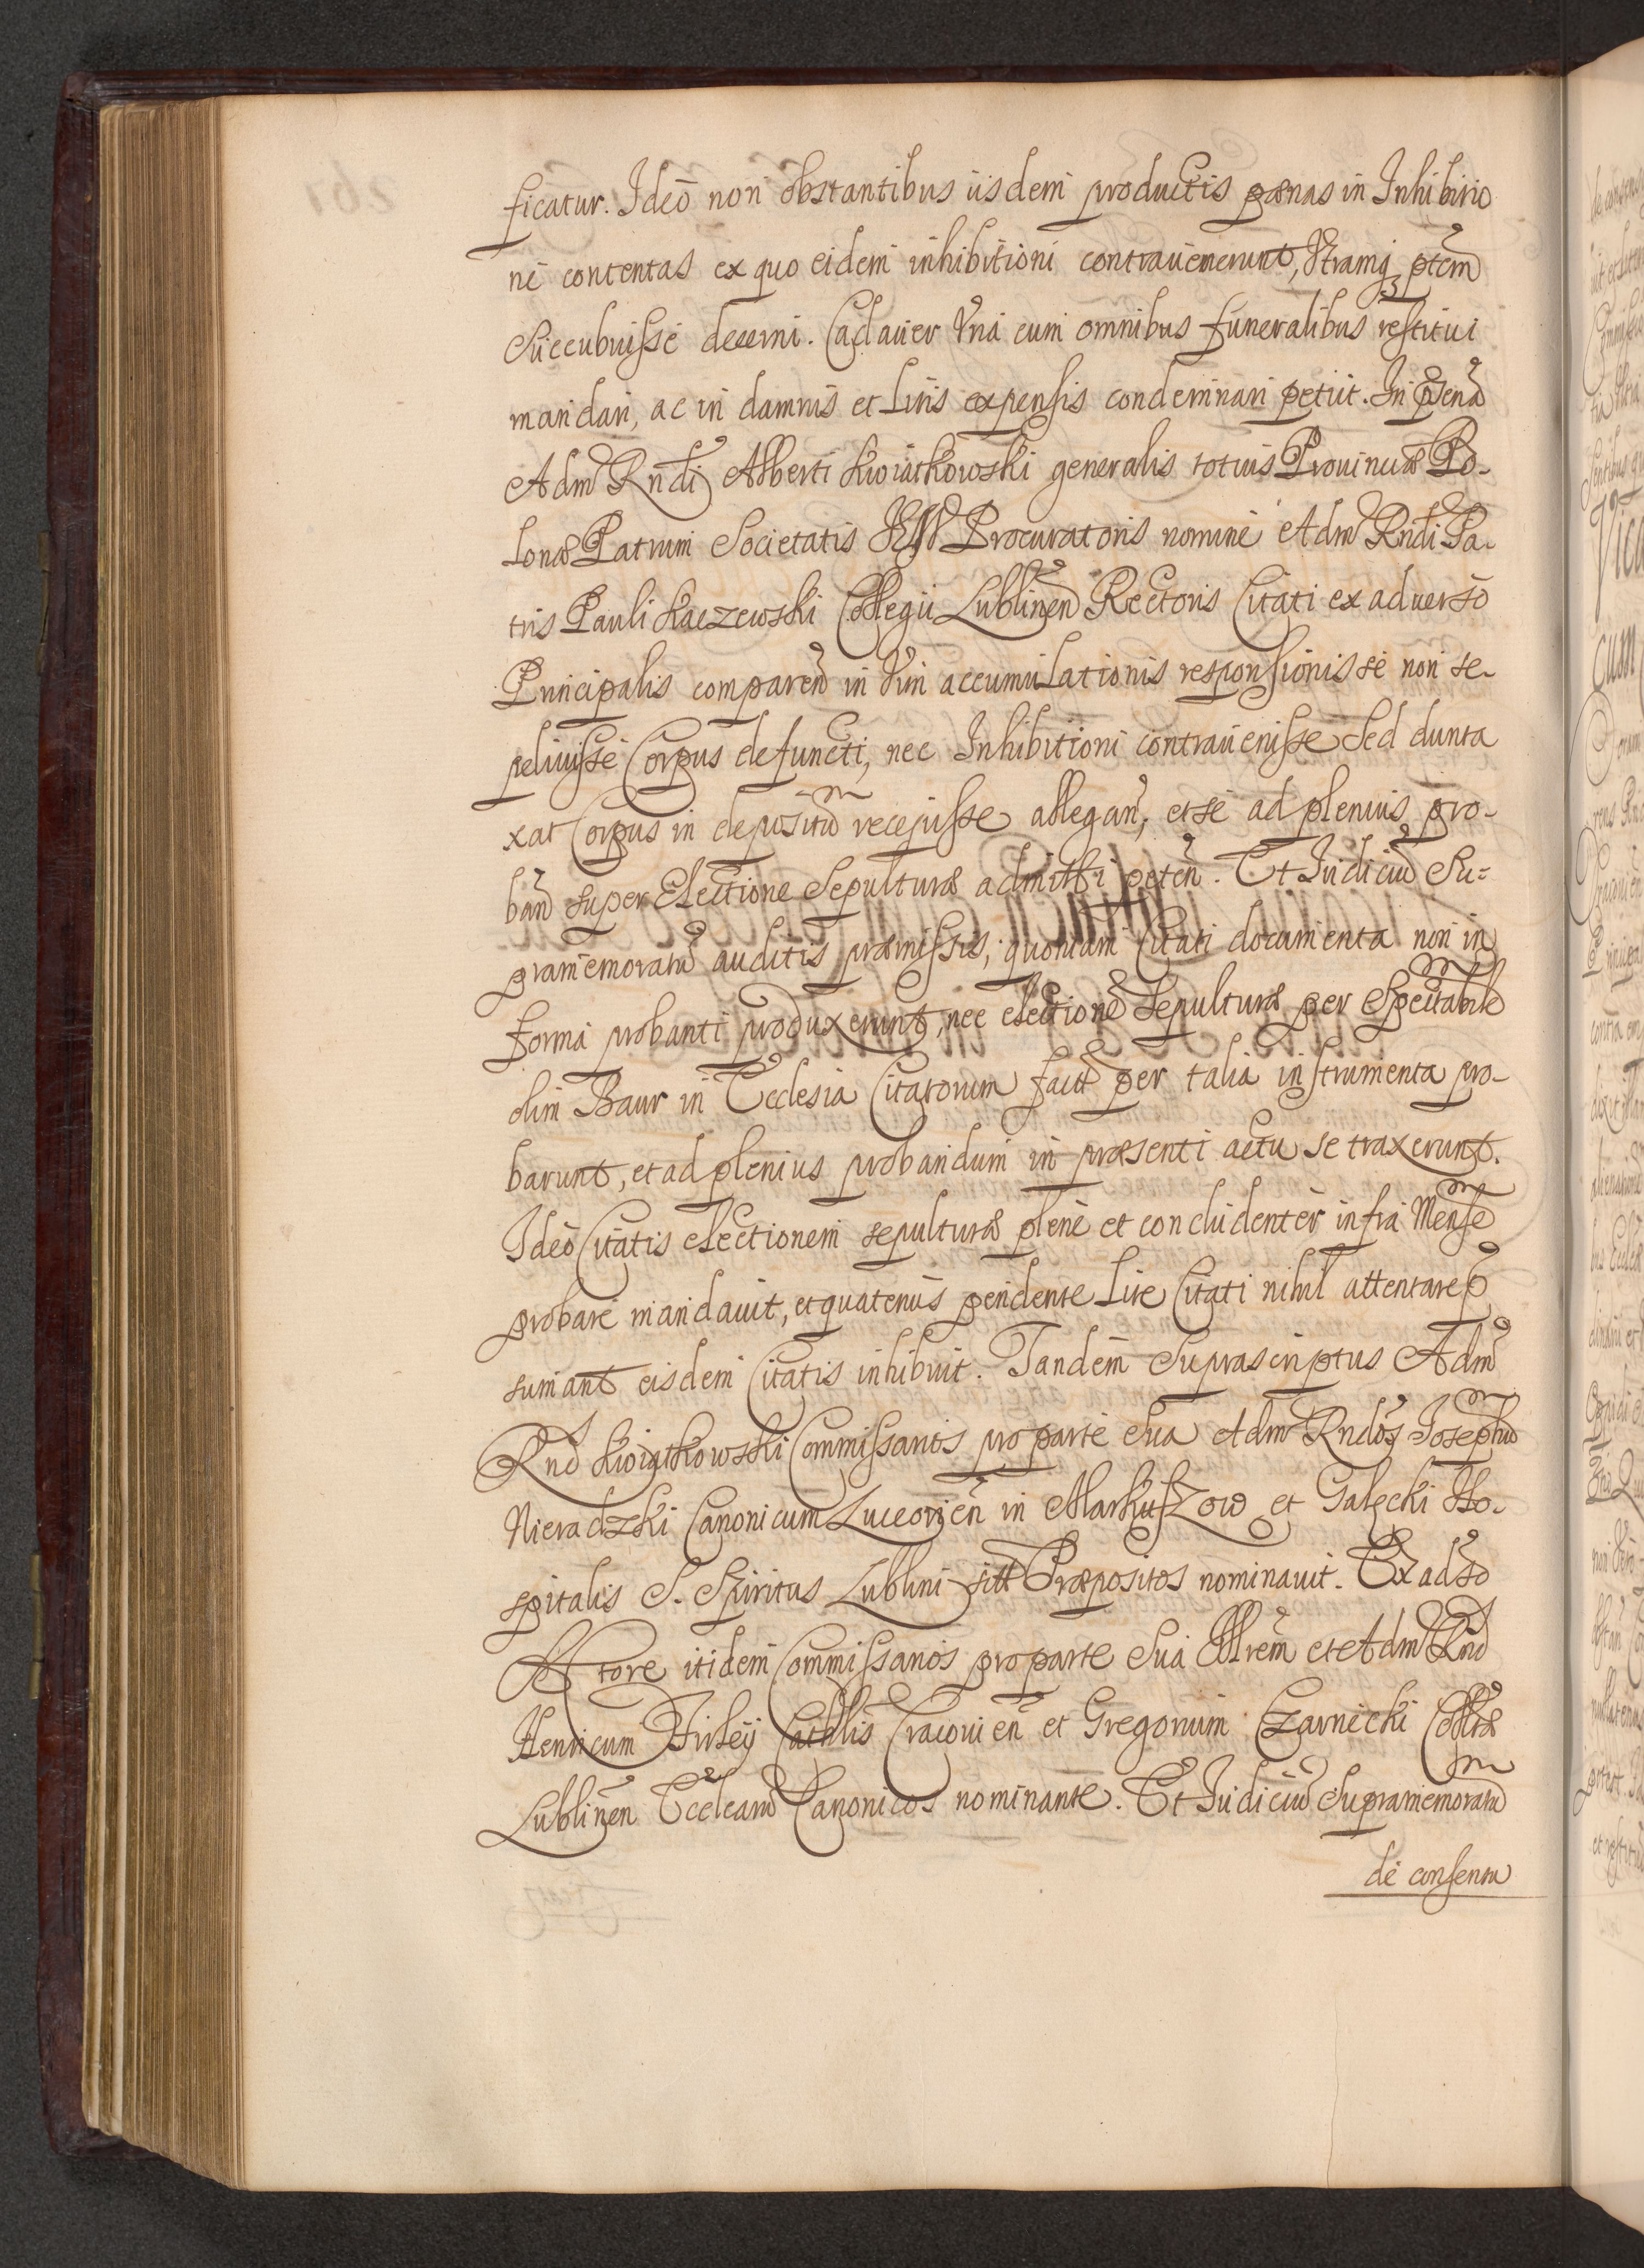 ficatur. Ideò non obstantibus iisdem productis pœnas in Inhibitio
ne contentas ex quo eidem inhibitioni contrauenerunt, Vtramq3 ptem
Succubuisse decerni. Cadauer Vna cum omnibus funeralibus restitui
mandari, ac in damnis et Litis expensis condemnari petiit. In pñtia
Adm Rndi Alberti Kwiatkowski generalis totius Prouinciæ Po-
lonæ Patrum Societatis IESV Procuratoris nomine Adm Rndi Pa-
tris Pauli Kaczewski Collegii Lublinen Rectoris Citati ex aduerso
Principalis comparen in Vim accumulationis responsionis se non se-
peliuisse Corpus defuncti, nec Inhibitioni contrauenisse Sed dunta
xat Corpus in depositũ recepisse allegan, et se ad plenius pro-
ban super Electione Sepulturæ admitti peten. Et Iudiciũ Su-
pramemoratũ auditis præmissis, quoniam Citati documenta non in
forma probanti produxerunt, nec electionẽ Sepulturæ per Spectabilẽ
olim Baur in Ecclesia Citatorum factã per talia instrumenta pro-
barunt, et ad plenius probandum in præsenti actu se traxerunt.
Ideò Citatis electionem sepulturæ plenè et concludentèr infra Mensẽ
probare mandauit, et quatenùs pendente Lite Citati nihil attentare p
sumant eisdem Citatis inhibuit. Tandem Suprascriptus Adm
Rnd Kwiatkowski Commissarios pro parte Sua Adm Rndos Iosephũ
Nieradzki Canonicum Luceorien in Markuszow et Gałęcki Ho-
spitalis S. Spiritus Lublini sitt Præpositos nominauit. Ex adso
Actore itidem Commissarios pro parte Sua Illrem et Adm Rnd
Henricum Firley Cathlis Cracouien et Gregorium Czarnecki Collæ
Lublinen Eccleanũ Canonicos nominante. Et Iudiciũ Supramemoratũ
de consensu